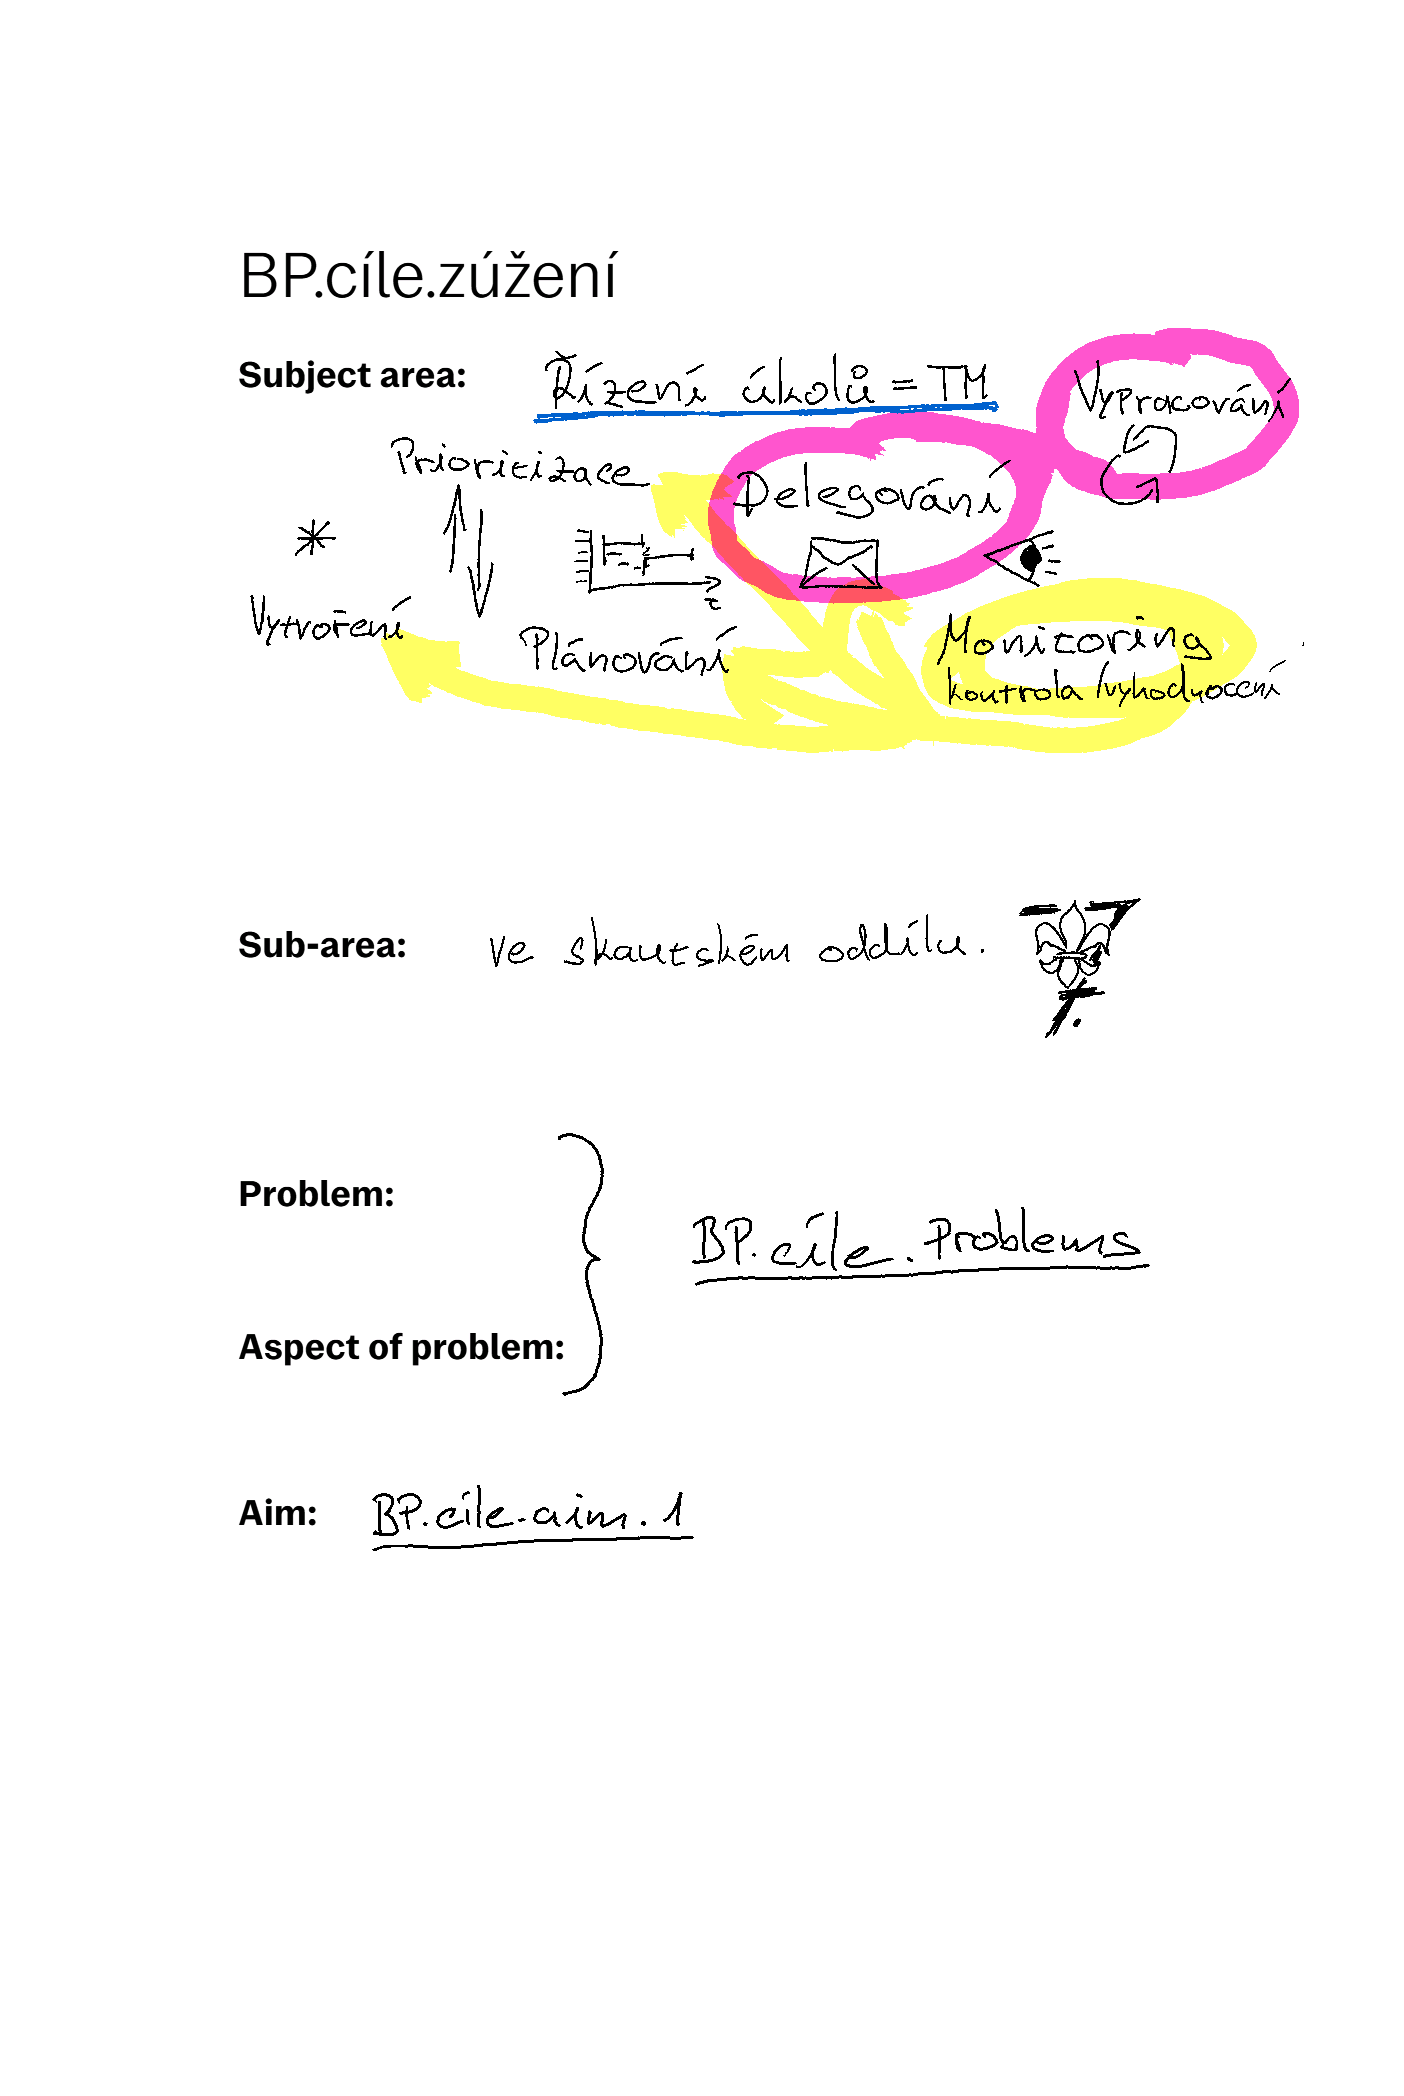 BP.cíle.zúžení
Subject area: Řízení úkolů = TM
Vypracování
Prioritizace
Delegování
Vytvoření
Plánování
Monitoring
kontrola/vyhodnocení
Sub-area: ve skautském oddílu.
Problem:
BP.cíle.Problems
Aspect of problem:
Aim: BP.cíle.aim.1